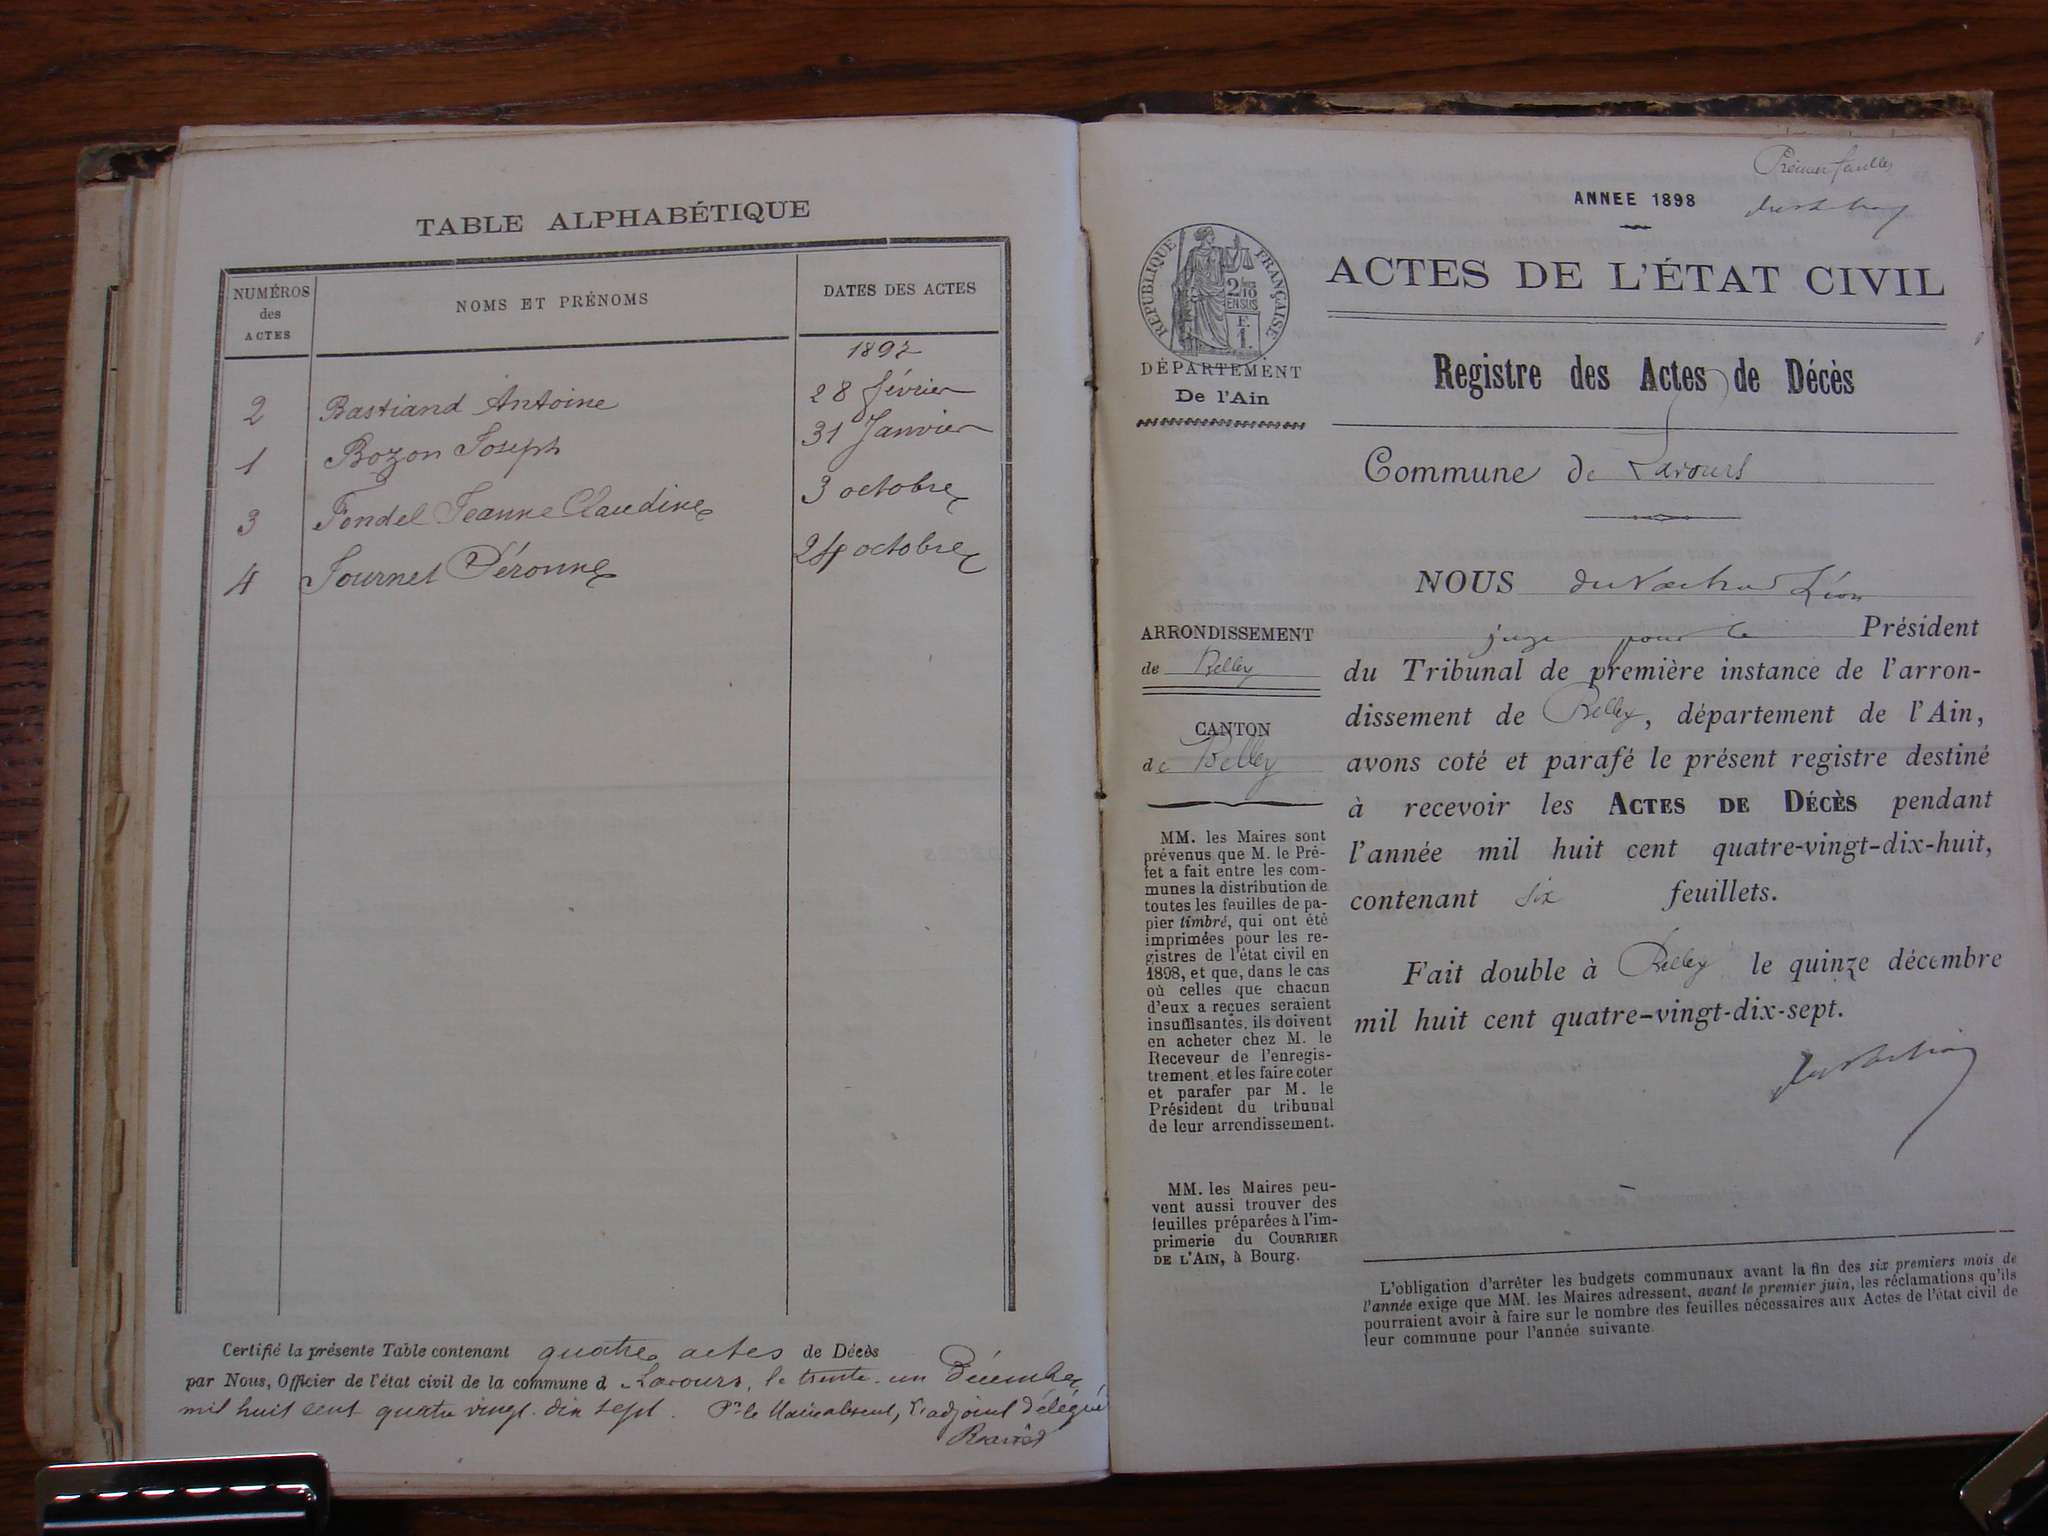 TABLE ALPHABÉTIQUE
NUMÉROS
des
ACTES
NOMS ET PRÉNOMS
DATES DES ACTES
1897
2 Bastiand Antoine 28 février
1 Bozon Joseph 31 Janvier
3 Fondel Jeanne Claudine 3 octobre
4 Journet Péronne 24 octobre
Certifié la présente Table contenant quatre actes de Décès
par Nous, Officier de l'état civil de la commune d Lavours, le trente-un Décembre
mil huit cent quatre vingt dix sept. Pr le Maire absent, l'adjoint délégué
Premier feuillet
ANNEE 1898
RÉPUBLIQUE FRANÇAISE
2/10
EN SUS
F.
1.
ACTES DE L'ÉTAT CIVIL
DÉPARTEMENT
De l'Ain
Registre des Actes de Décès
Commune de Lavours
NOUS Léon
ARRONDISSEMENT
de Belley
CANTON
de Belley
juge pour le Président
du Tribunal de première instance de l'arron-
dissement de Belley, département de l'Ain,
avons coté et parafé le présent registre destiné
à recevoir les ACTES DE DÉCÈS pendant
l'année mil huit cent quatre-vingt-dix-huit,
contenant six feuillets.
Fait double à Belley le quinze décembre
mil huit cent quatre-vingt-dix-sept.
MM. les Maires sont
prévenus que M. le Pré-
fet a fait entre les com-
munes la distribution de
toutes les feuilles de pa-
pier timbré, qui ont été
imprimées pour les re-
gistres de l'état civil en
1898, et que, dans le cas
où celles que chacun
d'eux a reçues seraient
insuffisantes, ils doivent
en acheter chez M. le
Receveur de l'enregis-
trement et les faire coter
et parafer par M. le
Président du tribunal
de leur arrondissement.
MM. les Maires peu-
vent aussi trouver des
feuilles préparées à l'im-
primerie du COURRIER
DE L'AIN, à Bourg.
L'obligation d'arrêter les budgets communaux avant la fin des six premiers mois de
l'année exige que MM. les Maires adressent, avant le premier juin, les réclamations qu'ils
pourraient avoir à faire sur le nombre des feuilles nécessaires aux Actes de l'état civil de
leur commune pour l'année suivante.